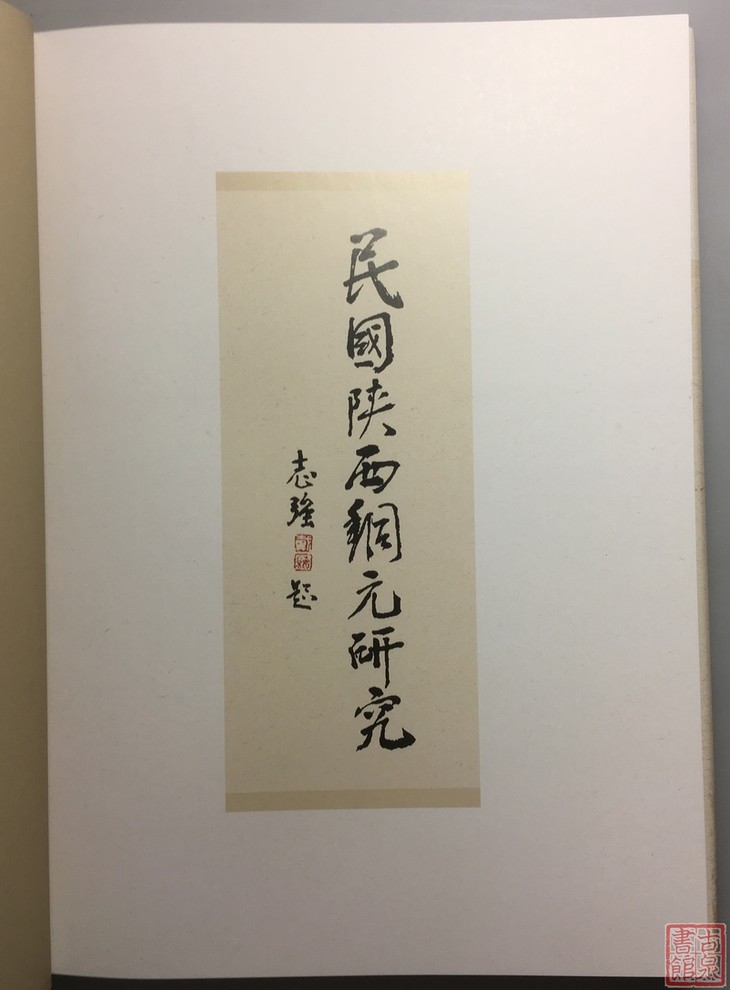 民國陕西銅元研究
志強題
古泉
書館